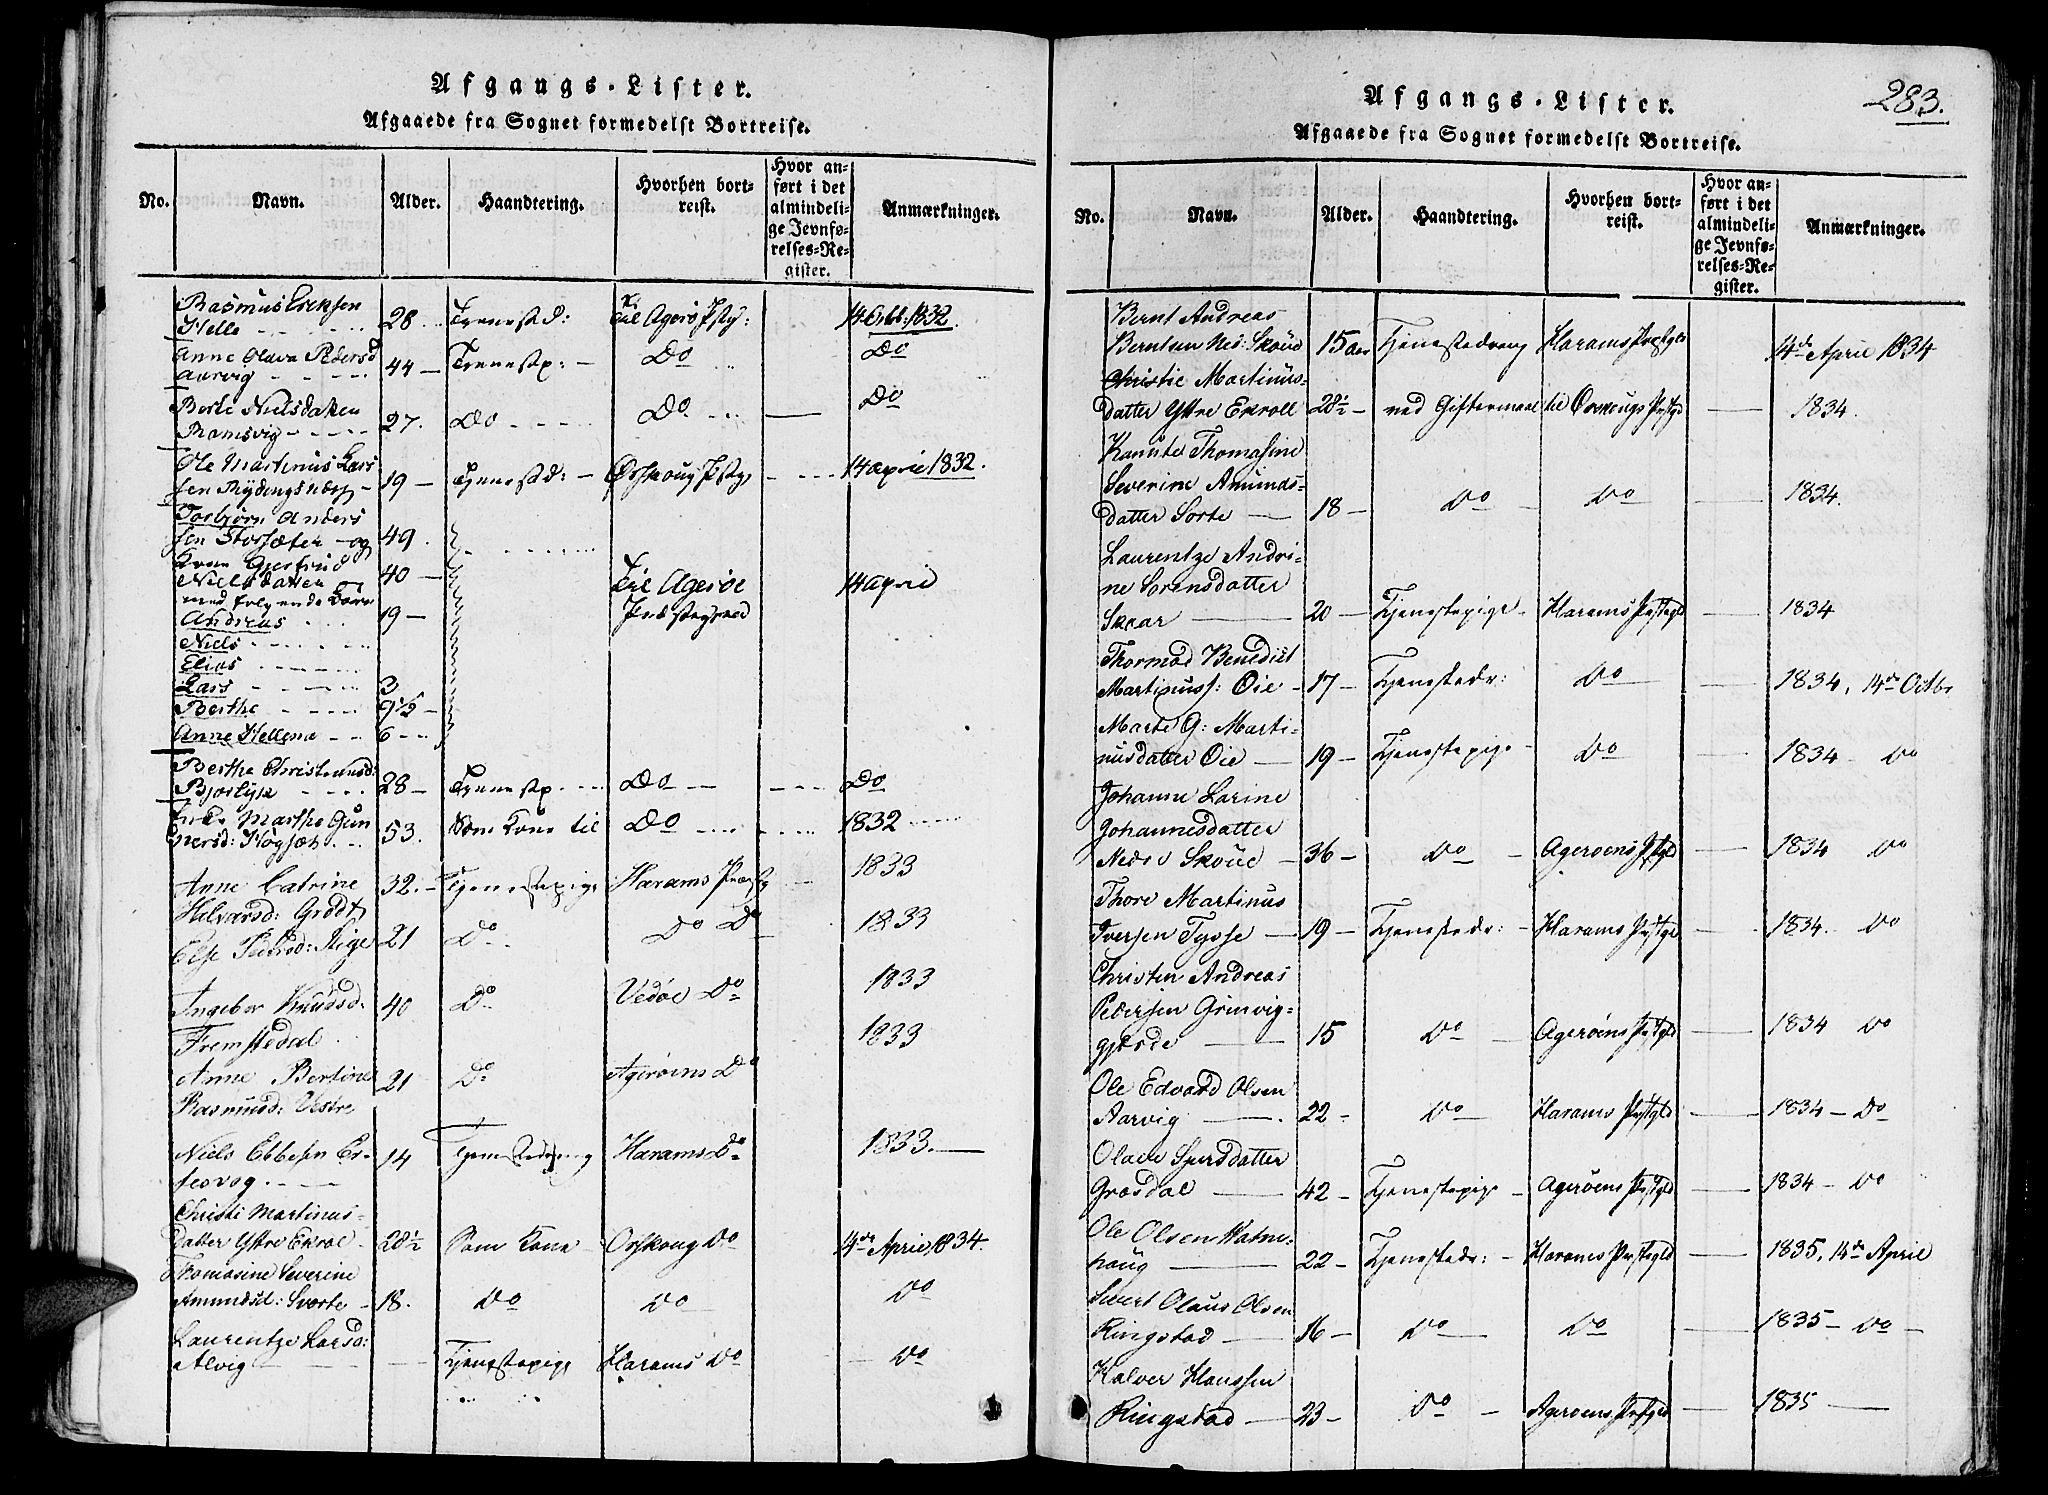 Afgangs-Lister.
Afgaaede fra Sognet formedelst Bortreise.
No. Navn. Alder. Haandtering. Hvorhen bortreist. Hvor anført i det almindelige Jevnførelses-Register. Anmærkninger.
Rasmus Ericksen
Helle 28 Tienested: til Agerø Pstgj: 14 Octbr: 1832.
Anne Olava Pedersd
Aarvig 44 — Tienestp: — Do Do
Berte Nielsdatter
Ramsvig 27. Do Do Do
Ole Martinus Lars
sen 19 — Tjenested: — Ørskoug Pstgj 14 april 1832.
Torbjørn Anders
sen Storsæter — og 49.
Kone Gjertrud
Nielsdatter 40 — Til Agerøe 14 april
med følgende Børn Præstegjeld
Andreas 19 —
Niels
Elias
Lars 3
Berthe 9 1/2 —
Anne Hellena 6
Berthe Christensd:
Bjørlyk 28 — Tienestp. Do Do
Enke Marthe Gun
nersd: Høgset 53. Som Kone til Do 1832
Anne Catrine 32. — Tjenestepige Harams Præstg 1833
Helvarsd: Grødt
Else Pedersd: Rige 21 Do Do Do 1833
Ingebor Knudsd: 40 Do Vedøe Do 1833
Fremstedal 1833
Anne Bertine 21 Do Agerøens Do
Rasmusd: Vestre
Niels Ebbesen 14 Tjenestedreng Harams Do 1833. —
Christi Martinus-
datter Ystre Ekrol 28 1/2 Som Kone Orskoug Do 14de April 1834.
Thomasine Severine
Amundsd: Svorte 18. Do Do Do
Laurentze Larsd:
Alvig — Tjenestepige Harams Do — Do
283.
Afgangs-Lister.
Afgaaede fra Sognet formedelst Bortreise.
No. Navn. Alder. Haandtering. Hvorhen bortreist. Hvor anført i det almindelige Jevnførelses-Register. Anmærkninger.
Bernt Andreas
Berntsen Ned: Skoue 15 aar Tjenestedreng Harams Præstgld 14de April 1834
Christie Martinus-
datter Ystre Ekroll 28 1/2 — ved Giftermaal til Ørskougs Præstgld — 1834.
Kanute Thomasine
Severine Amunds-
datter Sorte — 18 — Do Do — 1834.
Laurentze Andri-
ne Sorensdatter
Skaar — 20 — Tjenestepige Harams Præstgld — 1834
Thormod Benedict
Martinuss: Øie — 17 — Tjenestedr: Do — 1834, 14de Octbr
Marte G: Marti-
nusdatter Øie — 19 — Tjenestepige Do — 1834 — Do
Johanne Larine
Johannesdatter
Nedre Skoue — 36 — Do — Agerøens Pstgld — 1834 Do
Thore Martinus
Iversen Tysse — 19 — Tjenestedr: — Harams Præstgld — 1834. Do
Christen Andreas
Pedersen Grinvig-
gjerde — 15 Do — Agerøens Præstgld 1834 Do
Ole Edvard Olsen
Aarvig — 22 — Do — Harams Præstgld — 1834 — Do
Olave Sjursdatter
Grøsdal — 42 — Tjenestepige — Agerøens Præstgld — 1834 — Do
Ole Olsen Vatne-
houg — 22 — Tjenestedr: — Harams Præstgld — 1835, 14de April
Sivert Olaus Olsen
Ringstad — 16 — Do Do — 1835 — Do —
Halver Hanssen
Ringstad — 23 — Do — Agerøens Præstgld — 1835 —